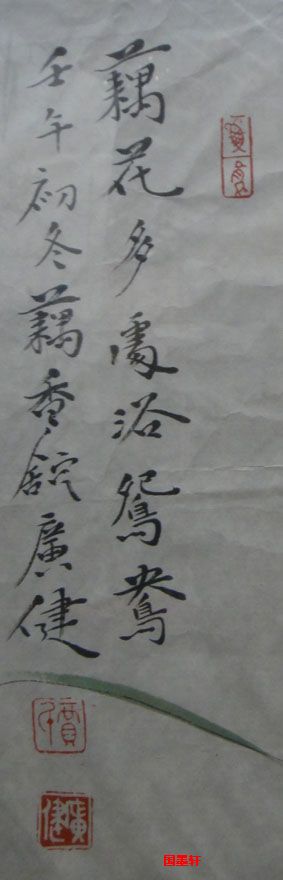 藕花多處浴鴛鴦
壬午初冬藕香舘廣健
廣健
国墨轩